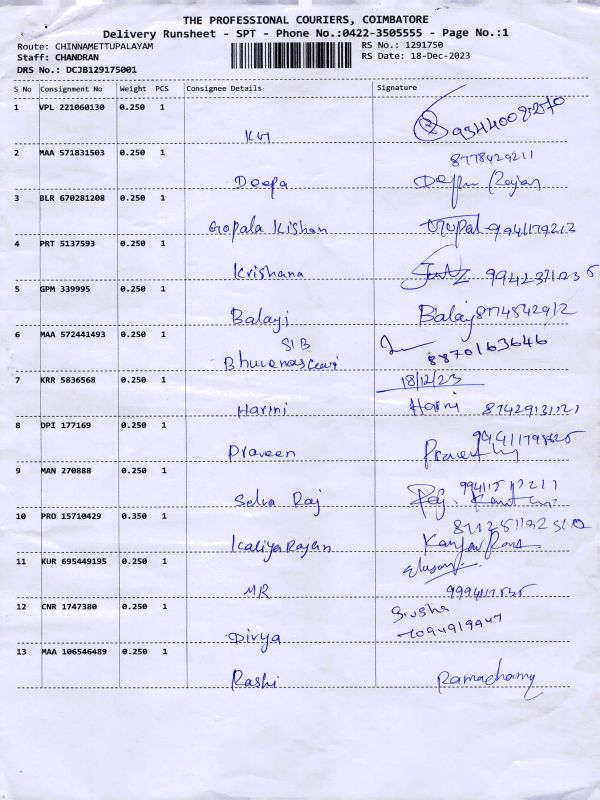 THE PROFESSIONAL COURIERS, COIMBATORE
Delivery Runsheet - SPT - Phone No.:0422-3505555 - Page No.:1
Route: CHINNAMETTUPALAYAM RS No.: 1291750
Staff: CHANDRAN RS Date: 18-Dec-2023
DRS No.: DCJB129175001
S No Consignment No Weight PCS Consignee Details Signature
1 VPL 221060130 0.250 1
KG
2 MAA 571831503 0.250 1 8778429211
Deepa
3 BLR 670281208 0.250 1
Gopala Kishan Gopal 9941179212
4 PRT 5137593 0.250 1
Krishana
5 GPM 339995 0.250 1
Balayi Balay
6 MAA 572441493 0.250 1 SIB
8870163646
7 KRR 5836568 0.250 1 18/12/23
Harini Harni
8 DPI 177169 0.250 1
Praveen
9 MAN 270888 0.250 1
Selva Raj Raj.
10 PRO 15710429 0.350 1
Kaliya Rajan
11 KUR 695449195 0.250 1
MR
12 CNR 1747380 0.250 1
Divya
13 MAA 106546489 0.250 1
Rashi Ramachany